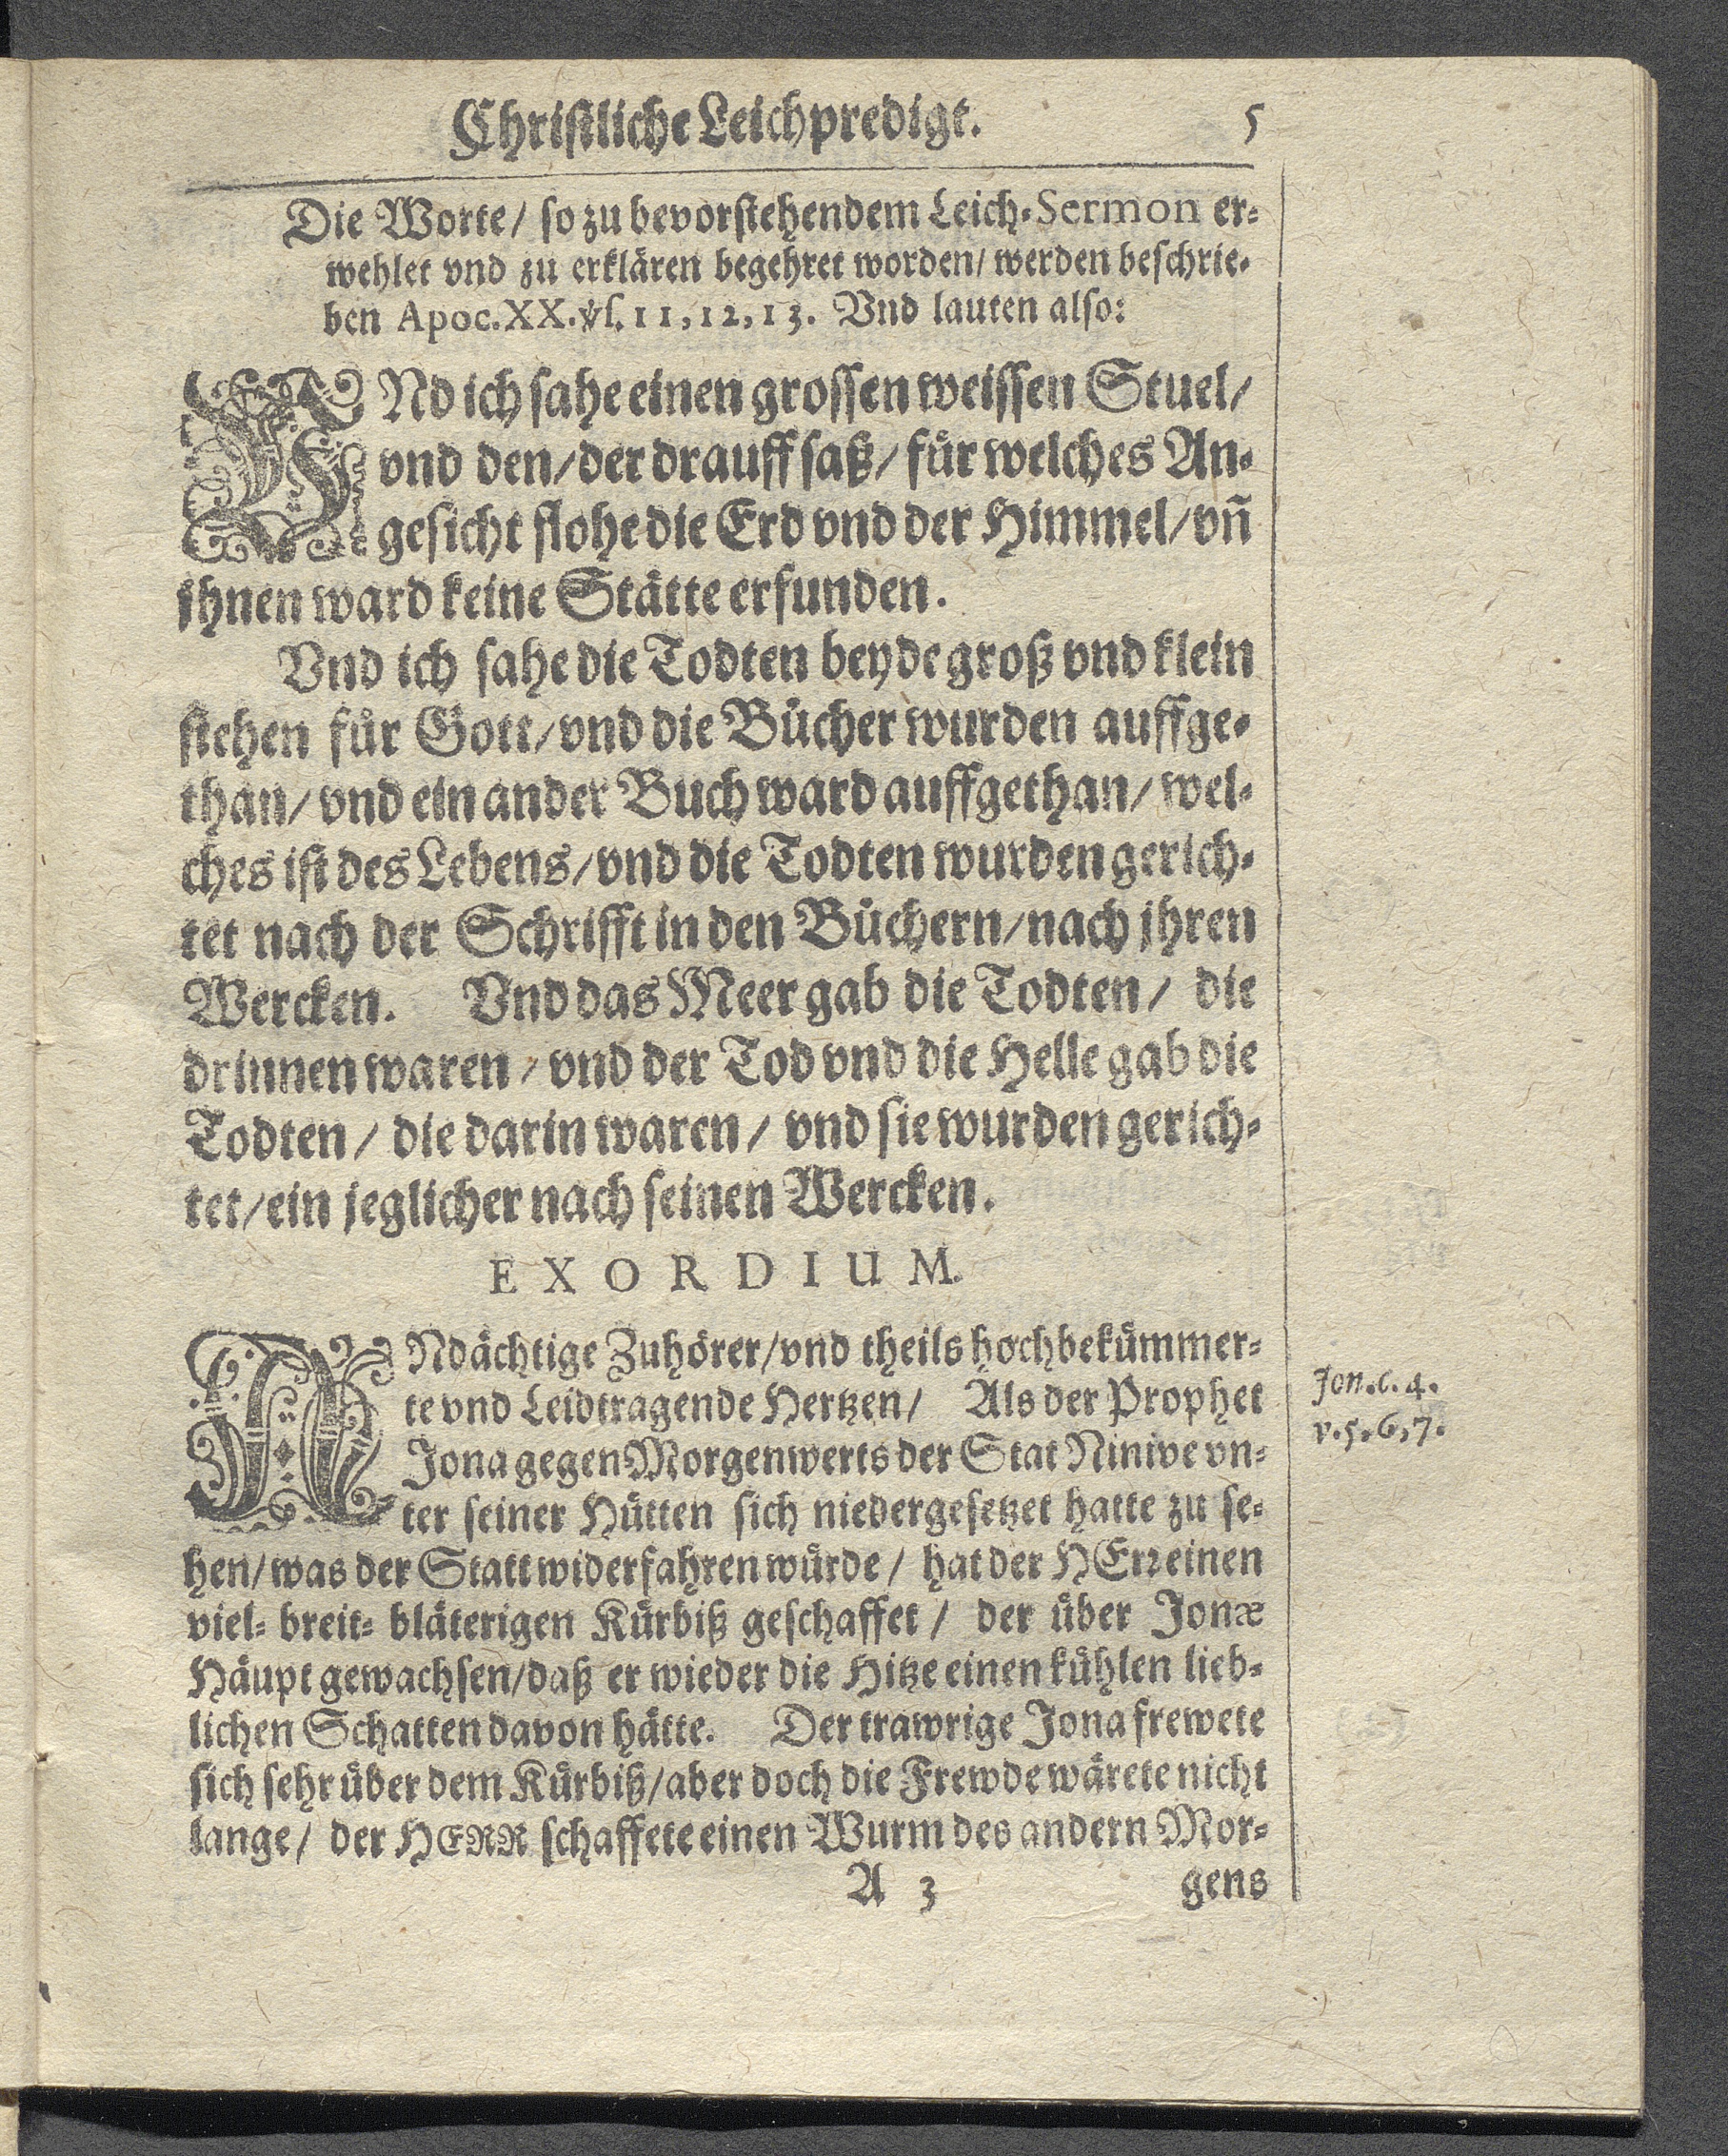 Christliche Leichpredigt. 5
Die Worte/ so zu bevorstehendem Leich-Sermon er-
wehlet vnd zu erklären begehret worden/ werden beschrie-
ben Apoc. XX. vs. 11, 12, 13. Vnd lauten also:
VNd ich sahe einen grossen weissen Stuel/
vnd den/ der drauff saß/ für welches An-
gesicht flohe die Erd vnd der Himmel/ vñ
jhnen ward keine Stätte erfunden.
Vnd ich sahe die Todten beyde groß vnd klein
stehen für Gott/ vnd die Bücher wurden auffge-
than/ vnd ein ander Buch ward auffgethan/ wel-
ches ist des Lebens/ vnd die Todten wurden gerich-
tet nach der Schrifft in den Büchern/ nach jhren
Wercken. Vnd das Meer gab die Todten/ die
drinnen waren/ vnd der Tod vnd die Helle gab die
Todten/ die darin waren/ vnd sie wurden gerich-
tet/ ein jeglicher nach seinen Wercken.
EXORDIUM.
ANdächtige Zuhörer/ vnd theils hochbekümmer-
te vnd Leidtragende Hertzen/ Als der Prophet
Jona gegen Morgenwerts der Stat Ninive vn-
ter seiner Hütten sich niedergesetzet hatte zu se-
hen/ was der Statt widerfahren würde/ hat der HErr einen
viel- breit- bläterigen Kürbiß geschaffet/ der über Jonæ
Häupt gewachsen/ daß er wieder die Hitze einen kühlen lieb-
lichen Schatten davon hätte. Der trawrige Jona frewete
sich sehr über dem Kürbiß/ aber doch die Frewde wärete nicht
lange/ der HERR schaffete einen Wurm des andern Mor-
A 3 gens
Jon. c. 4.
v. 5. 6, 7.